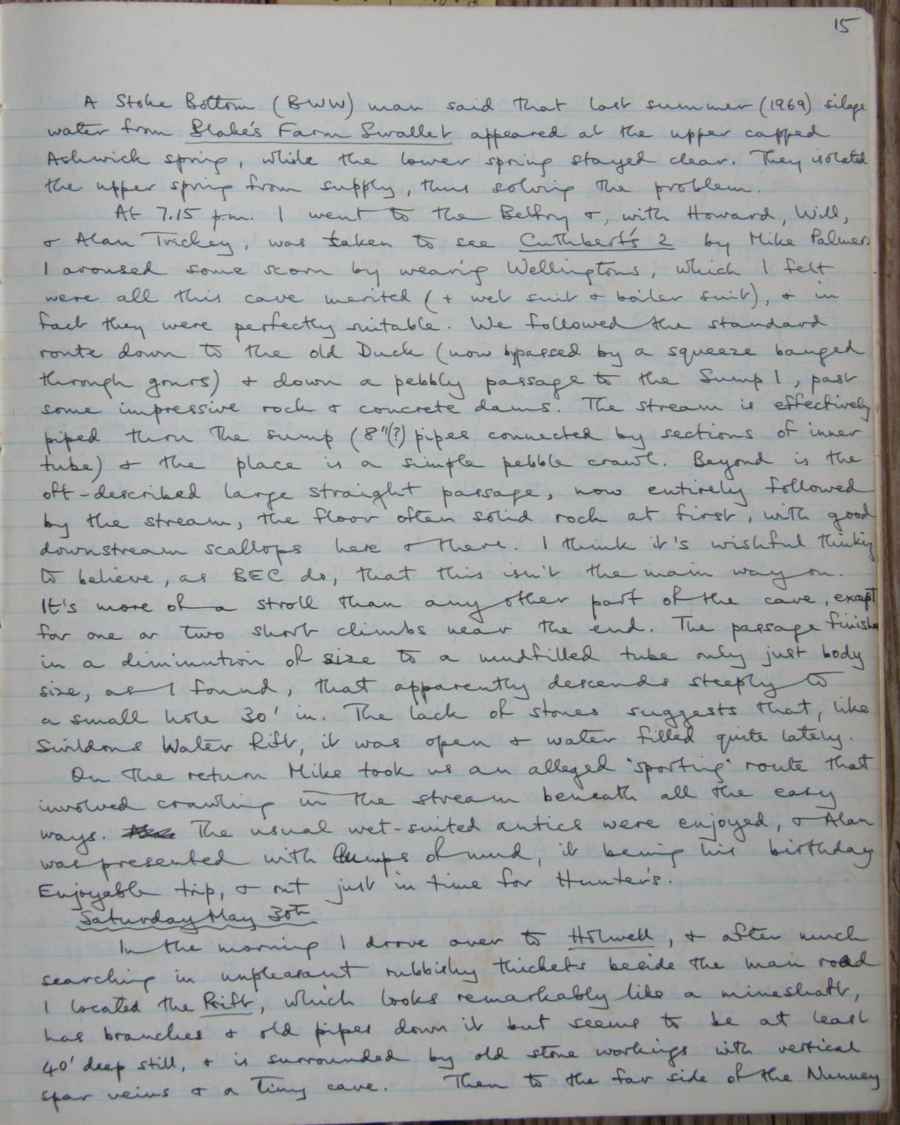 15
A Stoke Bottom (BWW) man said that last summer (1969) silage
water from Blake's Farm Swallet appeared at the upper capped
Ashwick spring, while the lower spring stayed clear. They isolated
the upper spring from supply, thus solving the problem.
At 7.15 pm. I went to the Belfry &, with Howard, Will,
& Alan Trickey, was taken to see Cuthbert's 2 by Mike Palmer.
I aroused some scorn by wearing Wellingtons, which I felt
were all this cave merited (+ wet suit & boiler suit), & in
fact they were perfectly suitable. We followed the standard
route down to the old Duck (now bypassed by a squeeze banged
through gours) & down a pebbly passage to the Sump 1, past
some impressive rock & concrete dams. The stream is effectively
piped thru the sump (8"(?) pipes connected by sections of inner
tube) & the place is a simple pebble crawl. Beyond is the
oft-described large straight passage, now entirely followed
by the stream, the floor often solid rock at first, with good
downstream scallops here & there. I think it's wishful thinking
to believe, as BEC do, that this isn't the main way on.
It's more of a stroll than any other part of the cave, except
for one or two short climbs near the end. The passage finishes
in a diminution of size to a mudfilled tube only just body
size, as I found, that apparently descends steeply to
a small hole 30' in. The lack of stones suggests that, like
Swildons Water Rift, it was open & water filled quite lately.
On the return Mike took us an alleged 'sporting' route that
involved crawling in the stream beneath all the easy
ways. The usual wet-suited antics were enjoyed, & Alan
was presented with lumps of mud, it being his birthday
Enjoyable trip, & out just in time for Hunter's.
Saturday May 30th
In the morning I drove over to Holwell, & after much
searching in unpleasant rubbishy thickets beside the main road
I located the Rift, which looks remarkably like a mineshaft,
has branches & old pipes down it but seems to be at least
40' deep still, & is surrounded by old stone workings with vertical
spar veins & a tiny cave. Then to the far side of the Nunney